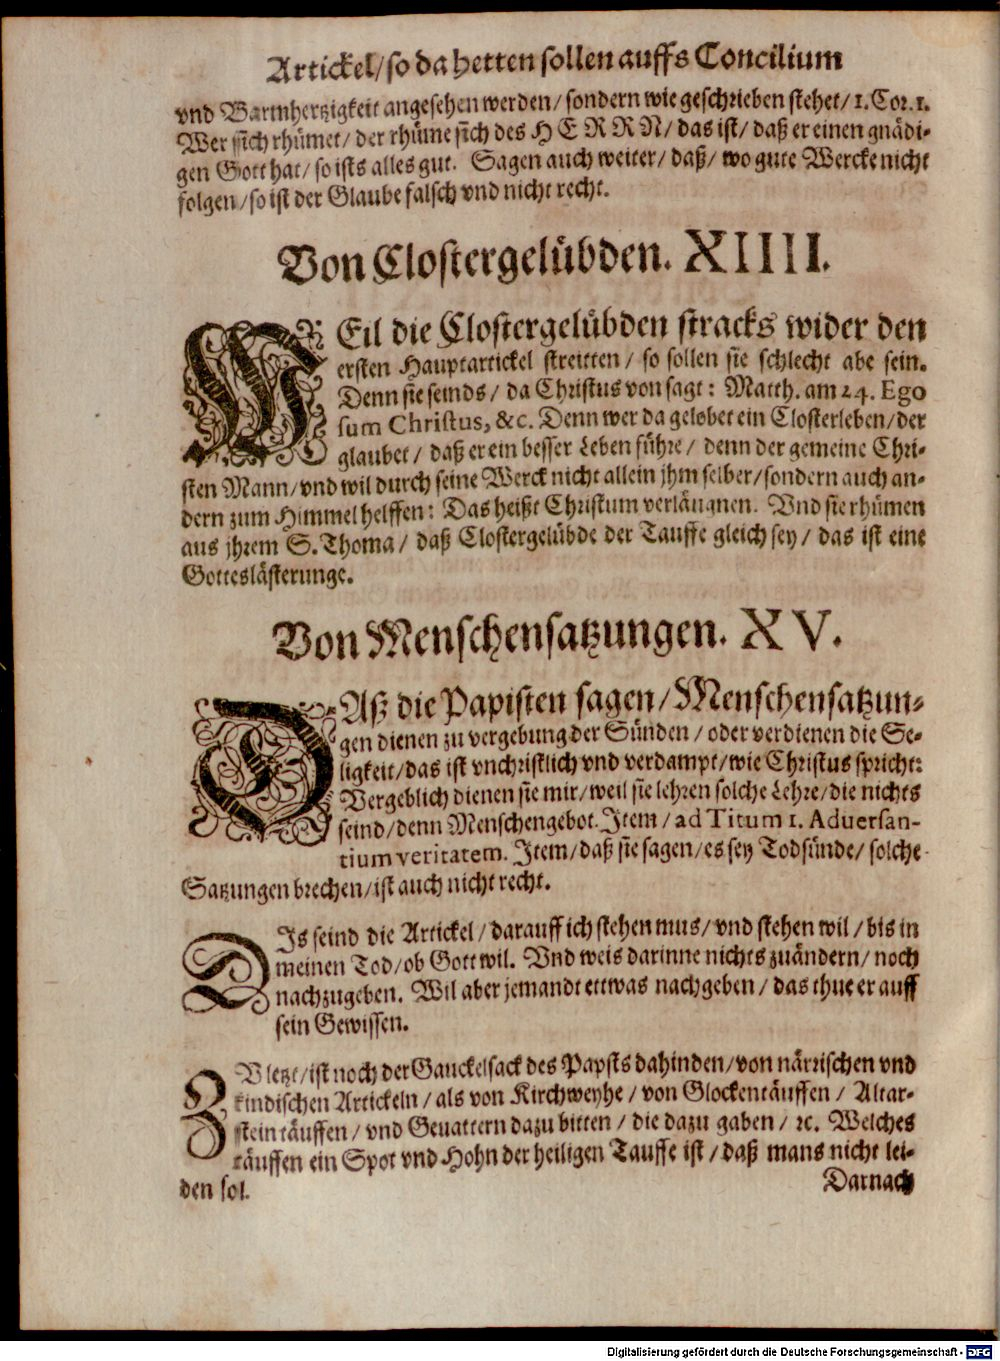 Artickel/so da hetten sollen auffs Concilium
vnd Barmhertzigkeit angesehen werden/ sondern wie geschrieben stehet/ 1. Cor. 1.
Wer sich rhümet/ der rhüme sich des HERRN/ das ist/ daß er einen gnädi-
gen Gott hat/ so ists alles gut. Sagen auch weiter/ daß/ wo gute Wercke nicht
folgen/ so ist der Glaube falsch vnd nicht recht.
Von Clostergelübden. XIIII.
WEil die Clostergelübden stracks wider den
ersten Hauptartickel streitten/ so sollen sie schlecht abe sein.
Denn sie seinds/ da Christus von sagt: Matth. am 24. Ego
sum Christus, &c. Denn wer da gelobet ein Closterleben/ der
glaubet/ daß er ein besser Leben führe/ denn der gemeine Chri-
sten Mann/ vnd wil durch seine Werck nicht allein jhm selber/ sondern auch an-
dern zum Himmel helffen: Das heißt Christum verläugnen. Vnd sie rhümen
aus jhrem S. Thoma/ daß Clostergelübde der Tauffe gleich sey/ das ist eine
Gotteslästerunge.
Von Menschensatzungen. XV.
DAß die Papisten sagen/ Menschensatzun-
gen dienen zu vergebung der Sünden/ oder verdienen die Se-
ligkeit/ das ist vnchristlich vnd verdampt/ wie Christus spricht:
Vergeblich dienen sie mir/ weil sie lehren solche Lehre/ die nichts
seind/ denn Menschengebot. Item/ ad Titum 1. Aduersan-
tium veritatem. Item/ daß sie sagen/ es sey Todsünde/ solche
Satzungen brechen/ ist auch nicht recht.
DIs seind die Artickel/ darauff ich stehen mus/ vnd stehen wil/ bis in
meinen Tod/ ob Gott wil. Vnd weis darinne nichts zuändern/ noch
nachzugeben. Wil aber jemandt ettwas nachgeben/ das thue er auff
sein Gewissen.
ZVletzt/ ist noch der Gauckelsack des Papsts dahinden/ von närrischen vnd
kindischen Artickeln/ als von Kirchweyhe/ von Glockentäuffen/ Altar-
stein täuffen/ vnd Geuattern dazu bitten/ die dazu gaben/ ꝛc. Welches
täuffen ein Spot vnd Hohn der heiligen Tauffe ist/ daß mans nicht lei-
den sol.
Darnach
Digitalisierung gefördert durch die Deutsche Forschungsgemeinschaft - DFG